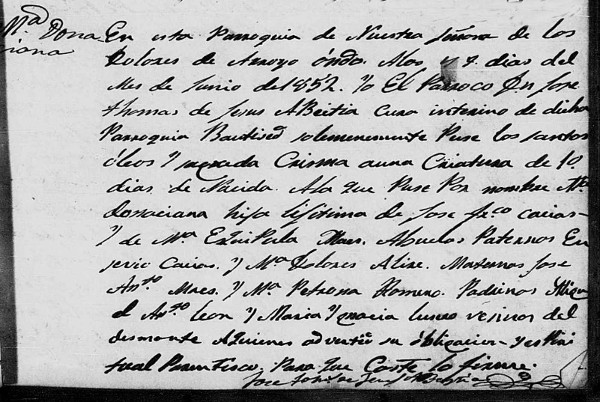 Mª Dona
riana
En esta Parroquia de Nuestra Señora de los
Dolores de Arroyo óndo. Alos y 8. dias del
Mes de Junio de 1852. Yo El Parroco Dn Jose
Thomas de Jesus ABeitia Cura interino de dicha
Parroquia Bautised solemnemente Puse los santos
óleos Y sagrada Crisma auna Criatura de 10
dias de Nacida. Ala que Puse Por nombre Mª
donaciana hija lijitima de Jose Frco cacias
Y de Mª EzquiPula Maes. Abuelos Paternos En
serio Cacias. Y Mª Dolores Alire. Maternos Jose
Anto Maes. Y Mª Petrona Romero. Padrinos Migu
el Anto leon Y Maria Ygnacia lunes vesinos del
desmonte Aquienes adverti su obligacion y espiri
tual Parentisco. Para que Coste lo firme.
Jose Tomas de Jesus ABeitia